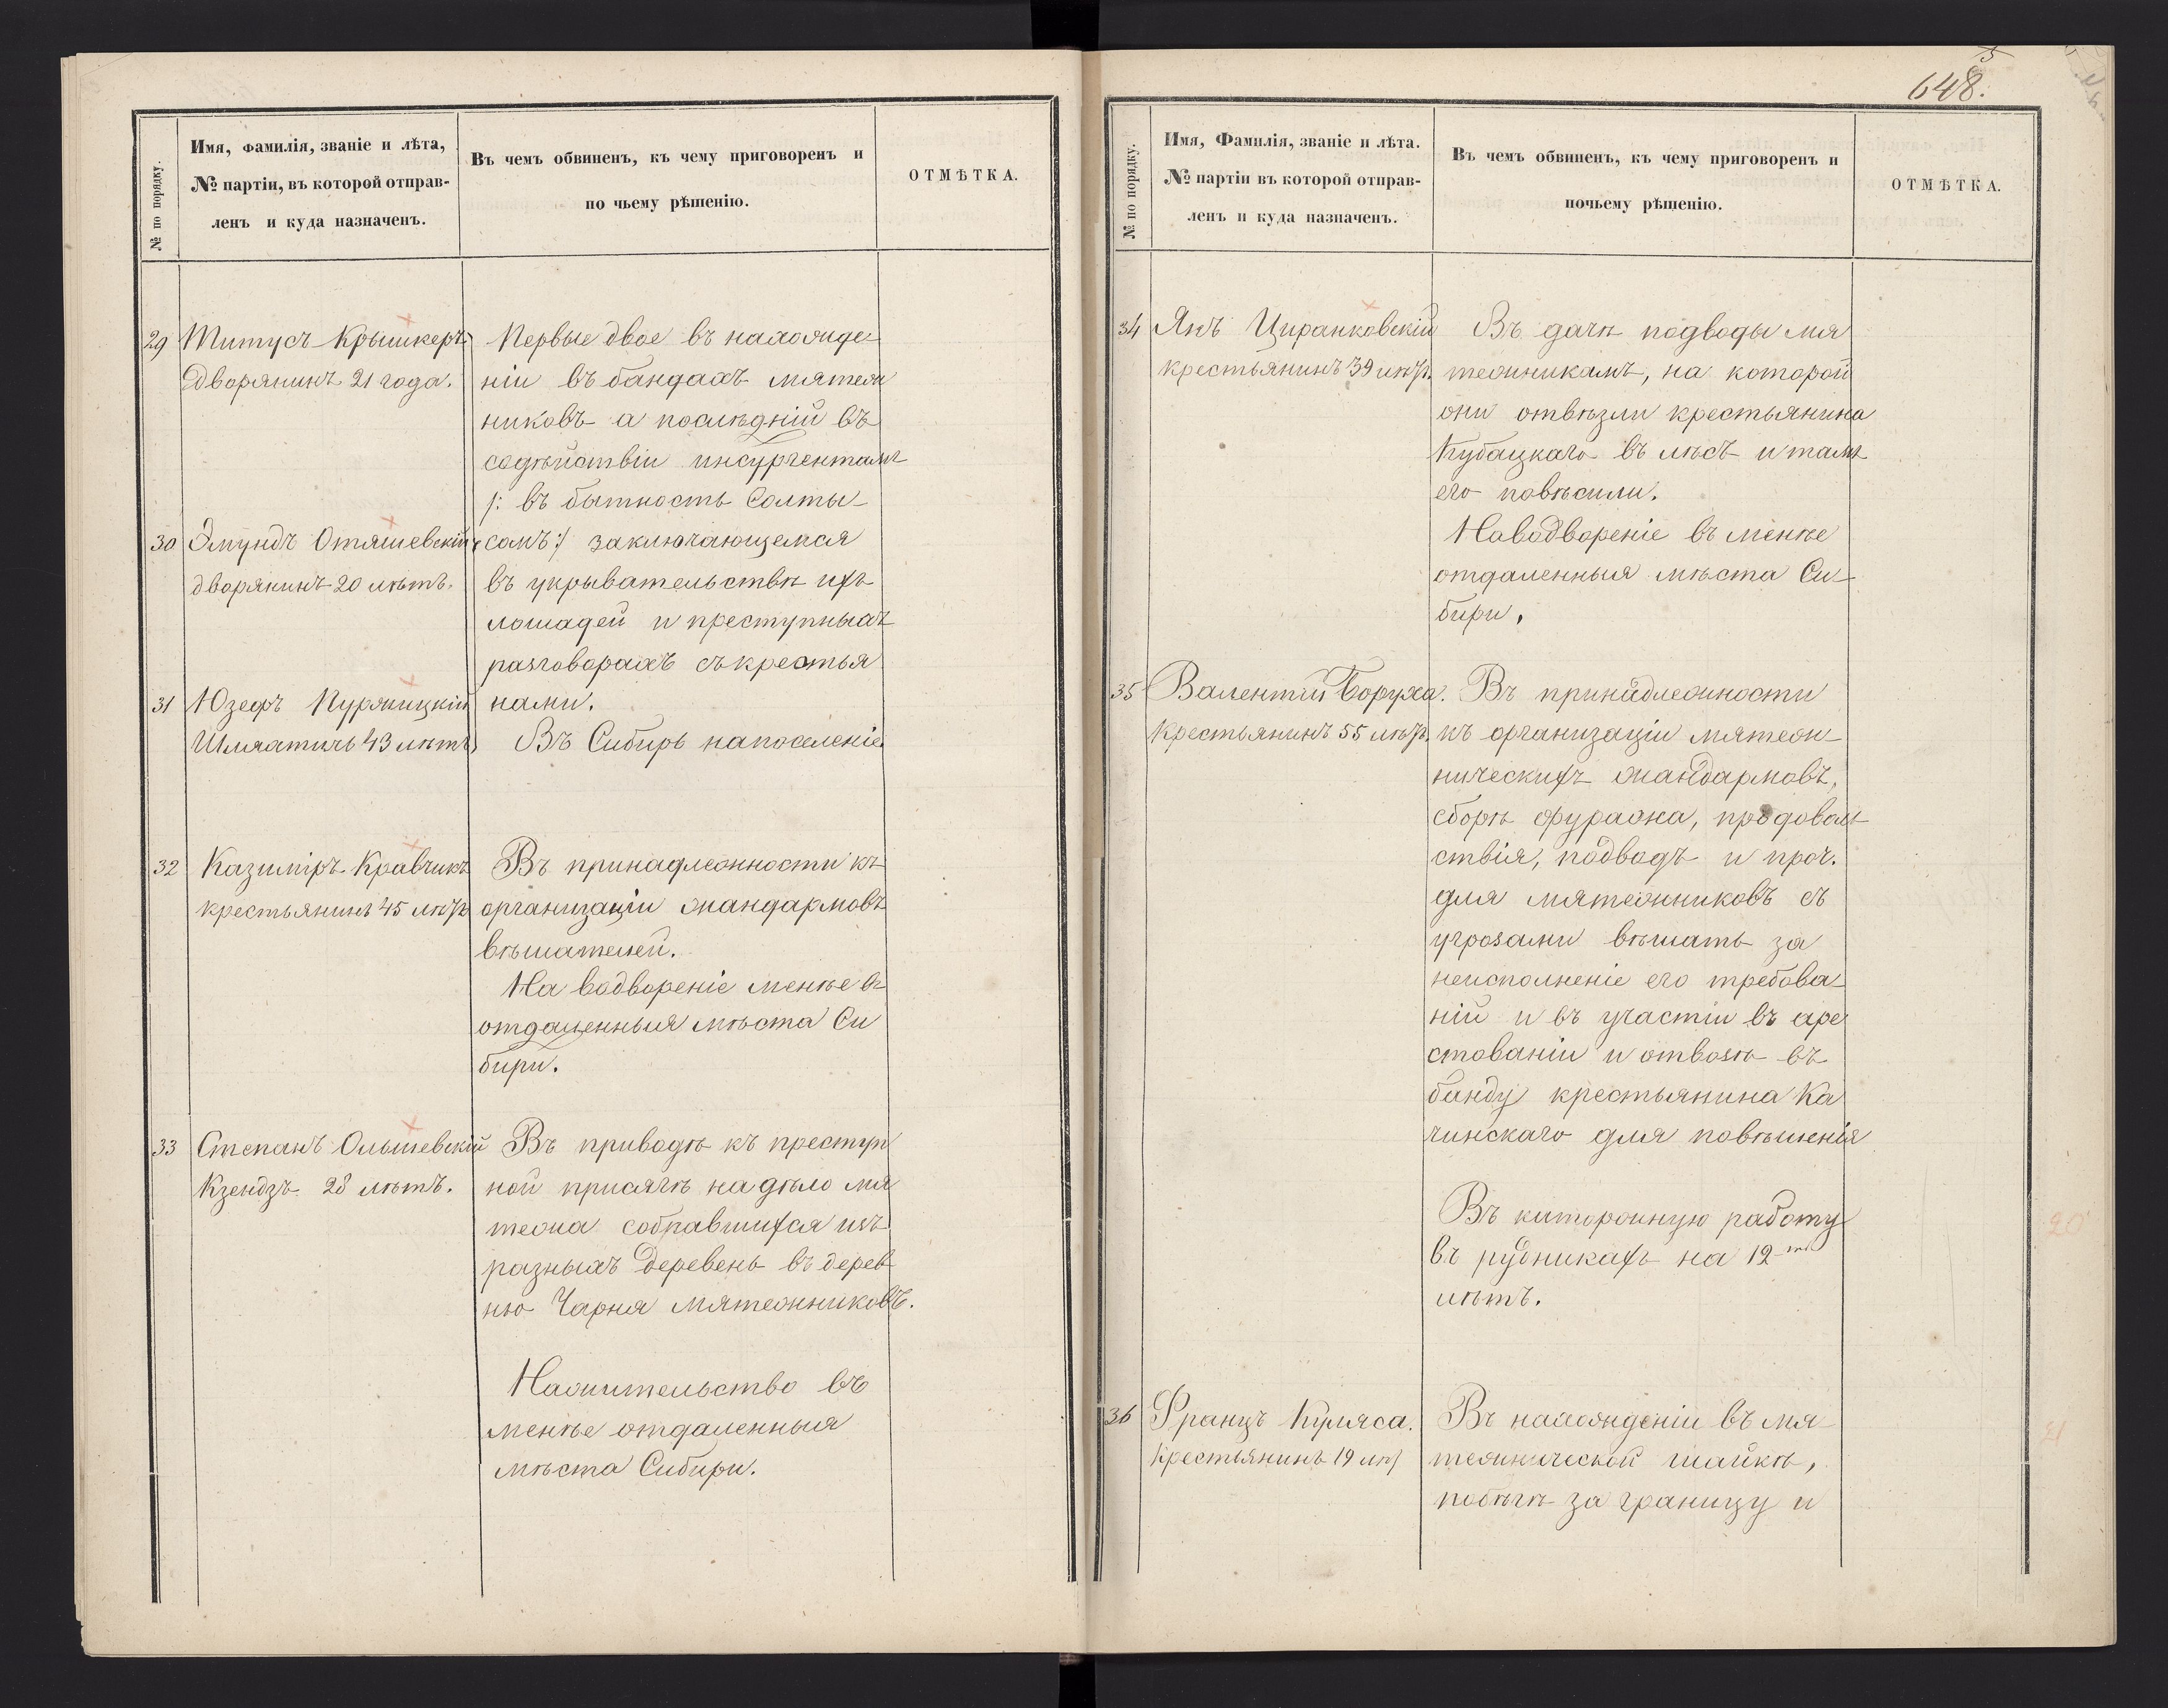 № по порядку.
Имя, фамилія, званіе и лѣта,
№ партіи, въ которой отправ-
ленъ и куда назначенъ.
Въ чемъ обвиненъ, къ чему приговоренъ и
по чьему рѣшенію.
ОТМѢТКА.
29
Титусъ Крышкеръ
Дворянинъ 21 года.
30
Эмундъ Отяшевскій
дворянинъ 20 лѣтъ.
31
Юзефъ
Шляхтичь 43 лѣтъ
Первые двое въ нахожде-
ніи въ бандахъ мятеж
никовъ а послѣдній въ
содѣйствіи инсургентамъ
/: въ бытность Солты-
сомъ :/ заключающемся
въ укрывательствѣ ихъ
лошадей и преступныхъ
разговорахъ съ крестья
нами.
Въ Сибирь на поселеніе.
32
Казиміръ Кравчикъ
крестьянинъ 45 лѣтъ
Въ принадлежности къ
организаціи жандармовъ
вѣшателей.
На водвореніе менѣе въ
отдаленныя мѣста Си
бири.
33
Степанъ Ольшевскій
Ксендзъ 28 лѣтъ.
Въ приводѣ къ преступ
ной присягѣ на дѣло мя
тежа собравшихся изъ
разныхъ деревень въ дерев
ню Чарня мятежниковъ.
На жительство въ
менѣе отдаленныя
мѣста Сибири.
648.
№ по порядку.
Имя, Фамилія, званіе и лѣта.
№ партіи въ которой отправ-
ленъ и куда назначенъ.
Въ чемъ обвиненъ, къ чему приговоренъ и
почьему рѣшенію.
ОТМѢТКА.
34
Янъ Циранковскій
крестьянинъ 39 лѣтъ.
Въ дачѣ подводы мя
тежникамъ, на которой
они отвѣзли крестьянина
Кубацкаго въ лѣсъ и тамъ
его повѣсили.
На водвореніе въ менѣе
отдаленныя мѣста Си-
бири.
35
Валентій Боруха.
Крестьянинъ 55 лѣтъ.
Въ принадлежности
къ организаціи мятеж-
ническихъ жандармовъ,
сборѣ фуража, продоволь
ствія, подводъ и проч.
для мятежниковъ съ
угрозами вѣшать за
неисполненіе его требова-
ній и въ участіи въ аре
стованіи и отвозѣ въ
банду крестьянина Ка
чинскаго для повѣшенія
Въ каторжную работу
въ рудникахъ на 12-ть
лѣтъ.
36
Францъ Куляса.
Крестьянинъ 19 лѣтъ
Въ нахожденіи въ мя
тежнической шайкѣ,
побѣгѣ за границу и
20
21